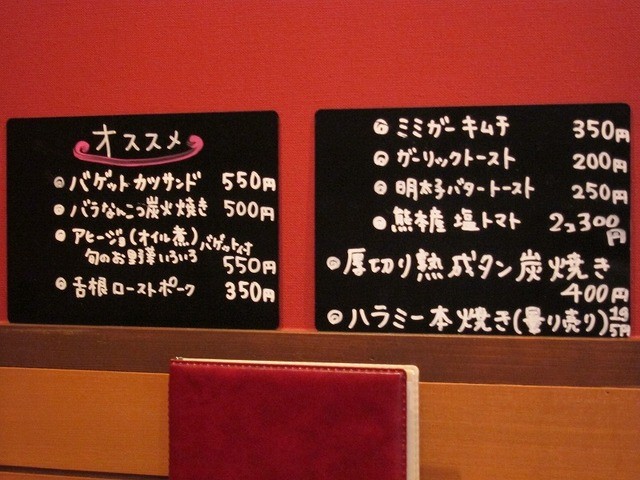 オススメ
バゲットカツサンド 550円
バラなんこつ炭火焼き 500円
アヒージョ(オイル煮)バゲット付
旬のお野菜いろいろ
550円
舌根ローストポーク 350円
ミミガーキムチ 350円
ガーリックトースト 200円
明太子バタートースト 250円
熊本産 塩トマト 2コ300
円
厚切り熟成タン炭焼き
400円
ハラミ一本焼き(量り売り)1g
5円